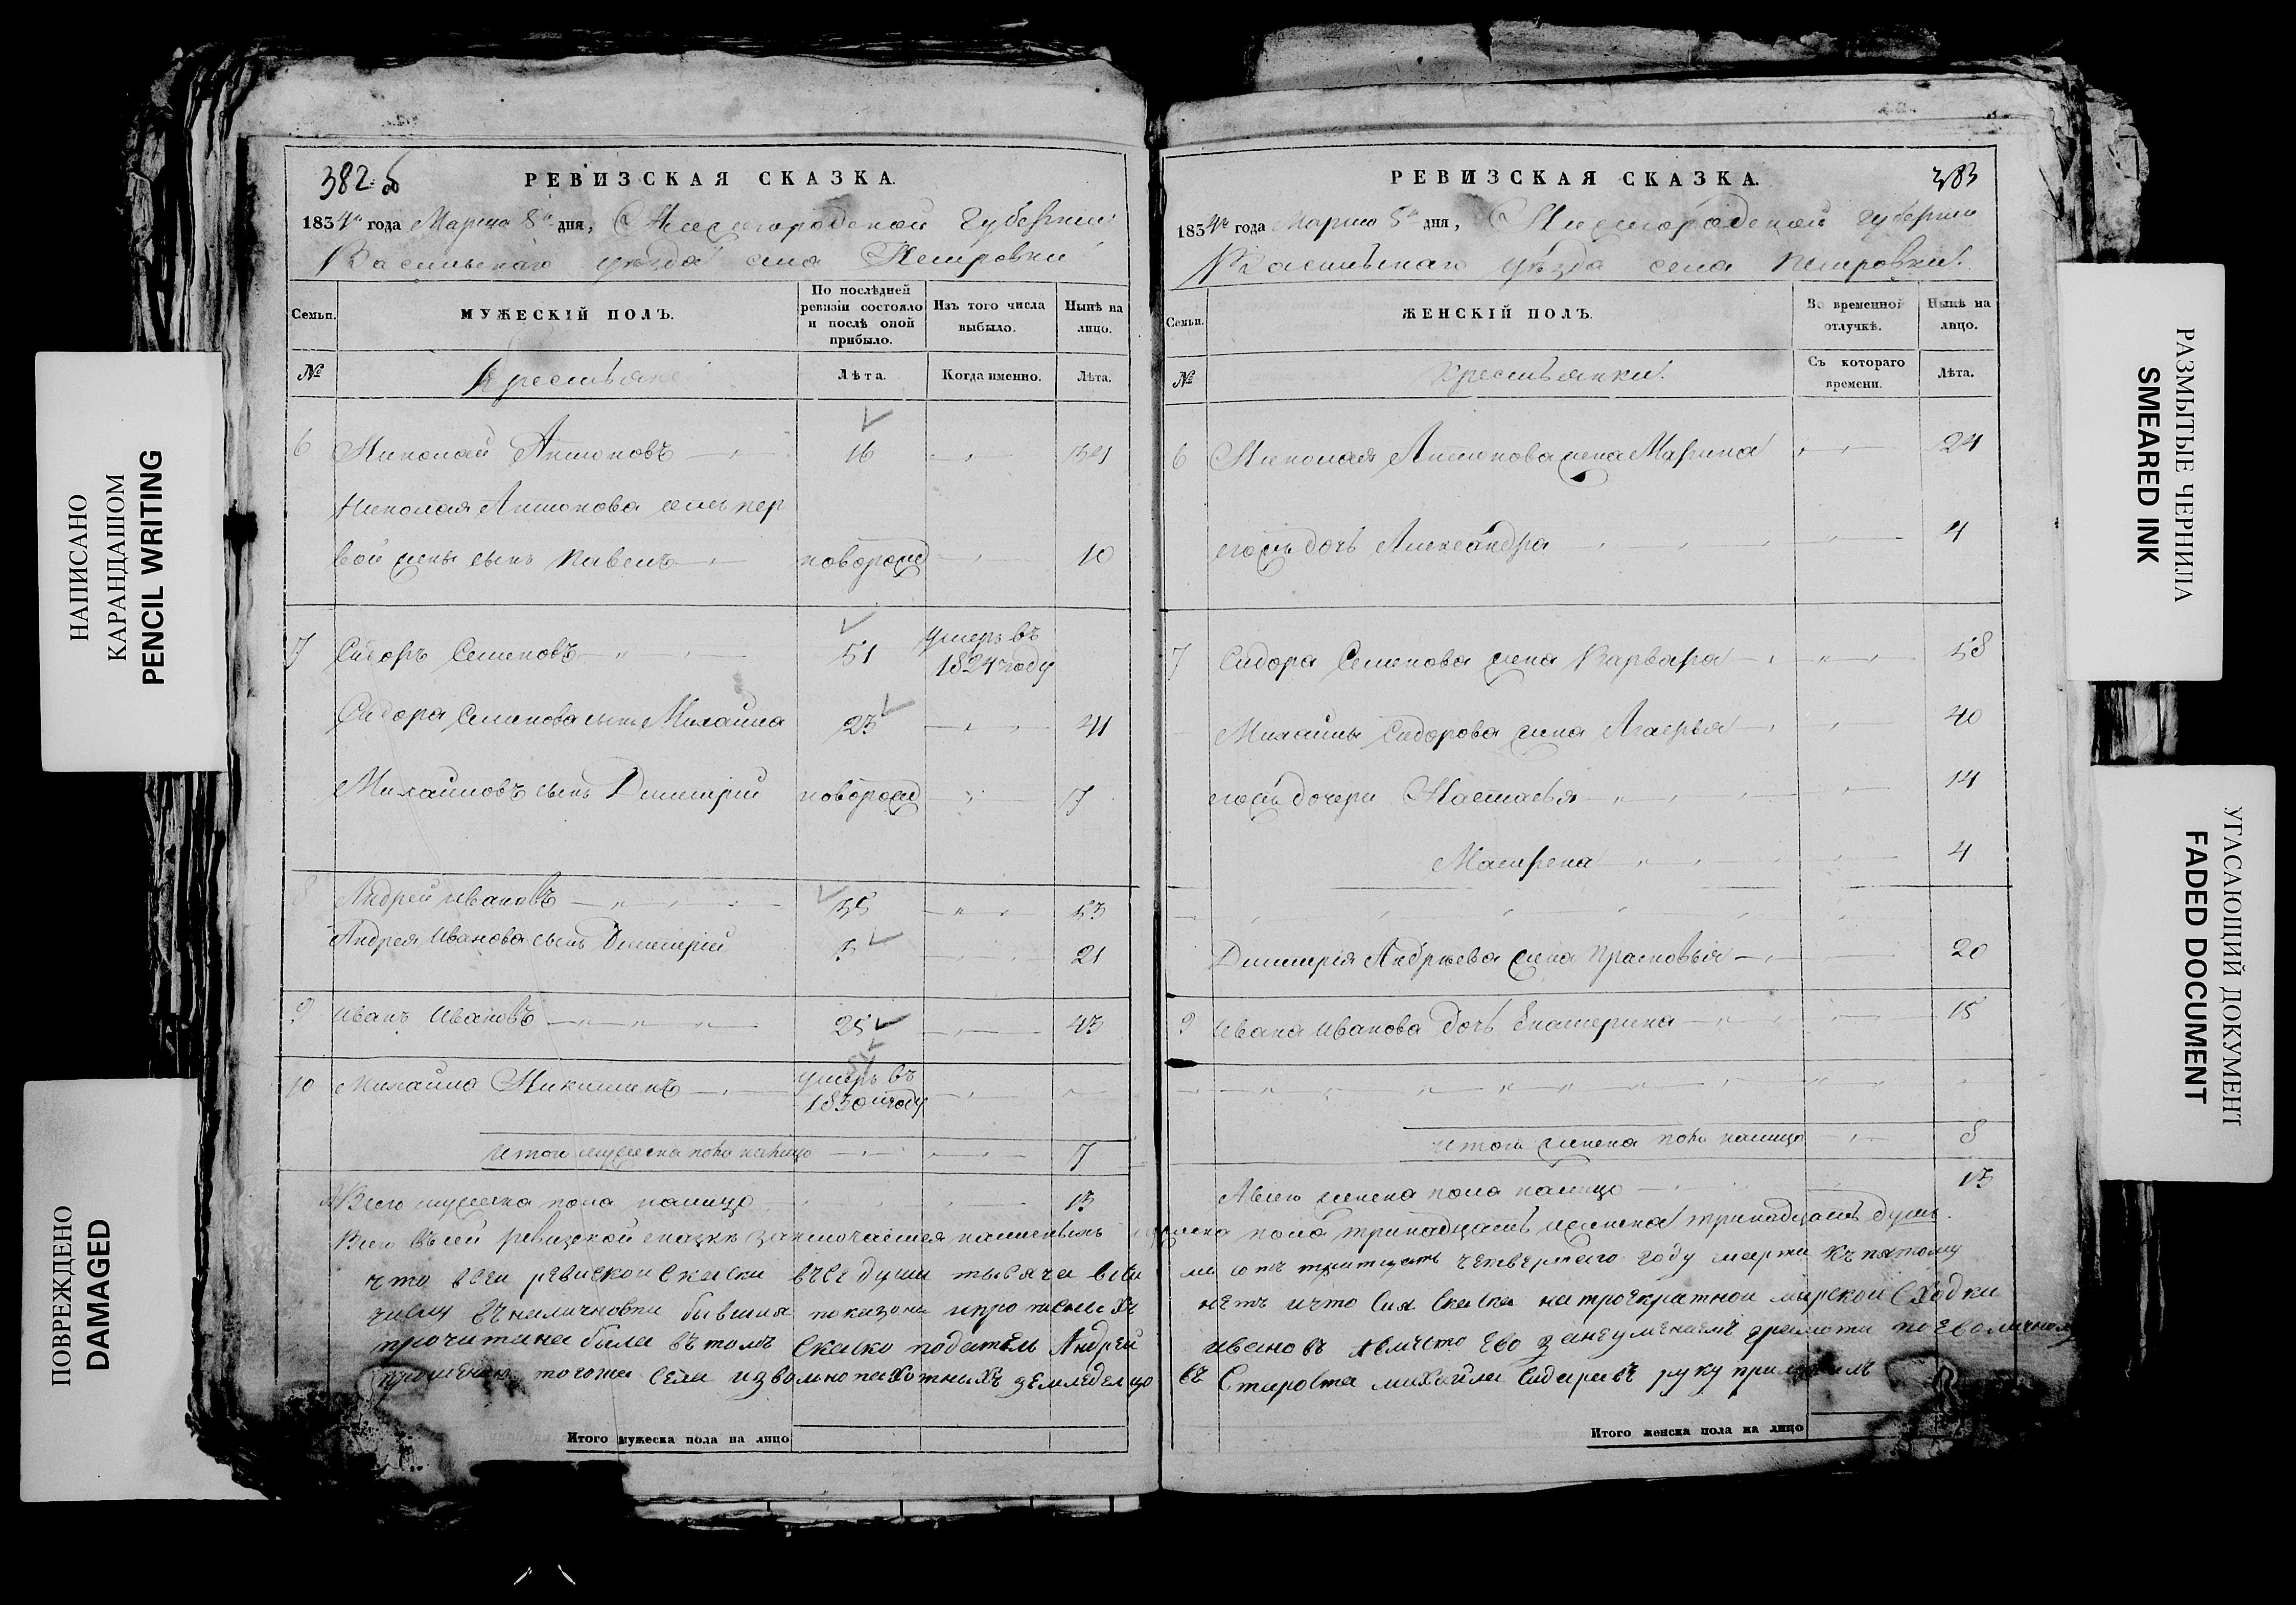 НАПИСАНО
КАРАНДАШОМ
PENCIL WRITING
ПОВРЕЖДЕНО
DAMAGED
382 б
РЕВИЗСКАЯ СКАЗКА.
1834го года Марта 5го дня, Нижегородской Губернии
Васильскаго уѣзда села Петровки
Семьи.
МУЖЕСКІЙ ПОЛЪ.
По послѣдней ревизіи состояло и послѣ оной прибыло.
Изъ того числа выбыло.
Нынѣ на лицо.
№
Крестьяне
Лѣта.
Когда именно.
Лѣта.
6 Николай Антоновъ 16 34
Николая Антонова отъ пер
вой жены сынъ Павелъ новорожд 10
7 Сидоръ Семеновъ 51 умеръ въ 1824 году
Сидора Семенова сынъ Михайла 23 41
Михайловъ сынъ Димитрій новорожд 7
8 Андрей Ивановъ 35 53
Андрея Иванова сынъ Димитрій 3 21
9 Иванъ Ивановъ 25 43
10 Михайла Никитинъ умеръ въ 1830 году
Итого мужеска пола налицо 7
Всего мужеска пола налицо 13
Всего въ сей ревизской сказкѣ заключается
что всей ревиской скаски въсе души тысяча восем
числу въ наличности бывшия показаны и прописных
прочитана была въ томъ скаско податель Андрей
прошению тогожа села извольнопахотныхъ земледелцо
Итого мужеска пола на лицо
РЕВИЗСКАЯ СКАЗКА.
383
1834го года Марта 5го дня, Нижегородской губернии
Васильскаго уѣзда села Петровки.
Семьи.
ЖЕНСКІЙ ПОЛЪ.
Во временной отлучкѣ.
Нынѣ на лицо.
№
Крестьянки.
Съ котораго времени.
Лѣта.
6 Николая Антонова жена Марина 24
егожъ дочь Александра 4
7 Сидора Семенова жена Варвара 58
Михайлы Сидорова жена Агафья 40
егожъ дочери Настасья 14
Матрена 4
Димитрія Андрѣева жена Прасковья 20
9 Ивана Иванова дочь Екатерина 15
Итого женска пола налицо 8
А всего женска пола налицо 13
пола тринадцать женска тринадцать душъ.
сотъ тритцать четвертаго году марта къ пятому
нетъ ичто сия скаска натроекратной мирской сходки
ивановъ авместо ево за неуменаемъ грамоты поеволичному
въ Староста михайла Сидаравъ руку приложилъ
Итого женска пола на лицо
РАЗМЫТЫЕ ЧЕРНИЛА
SMEARED INK
УГАСАЮЩИЙ ДОКУМЕНТ
FADED DOCUMENT